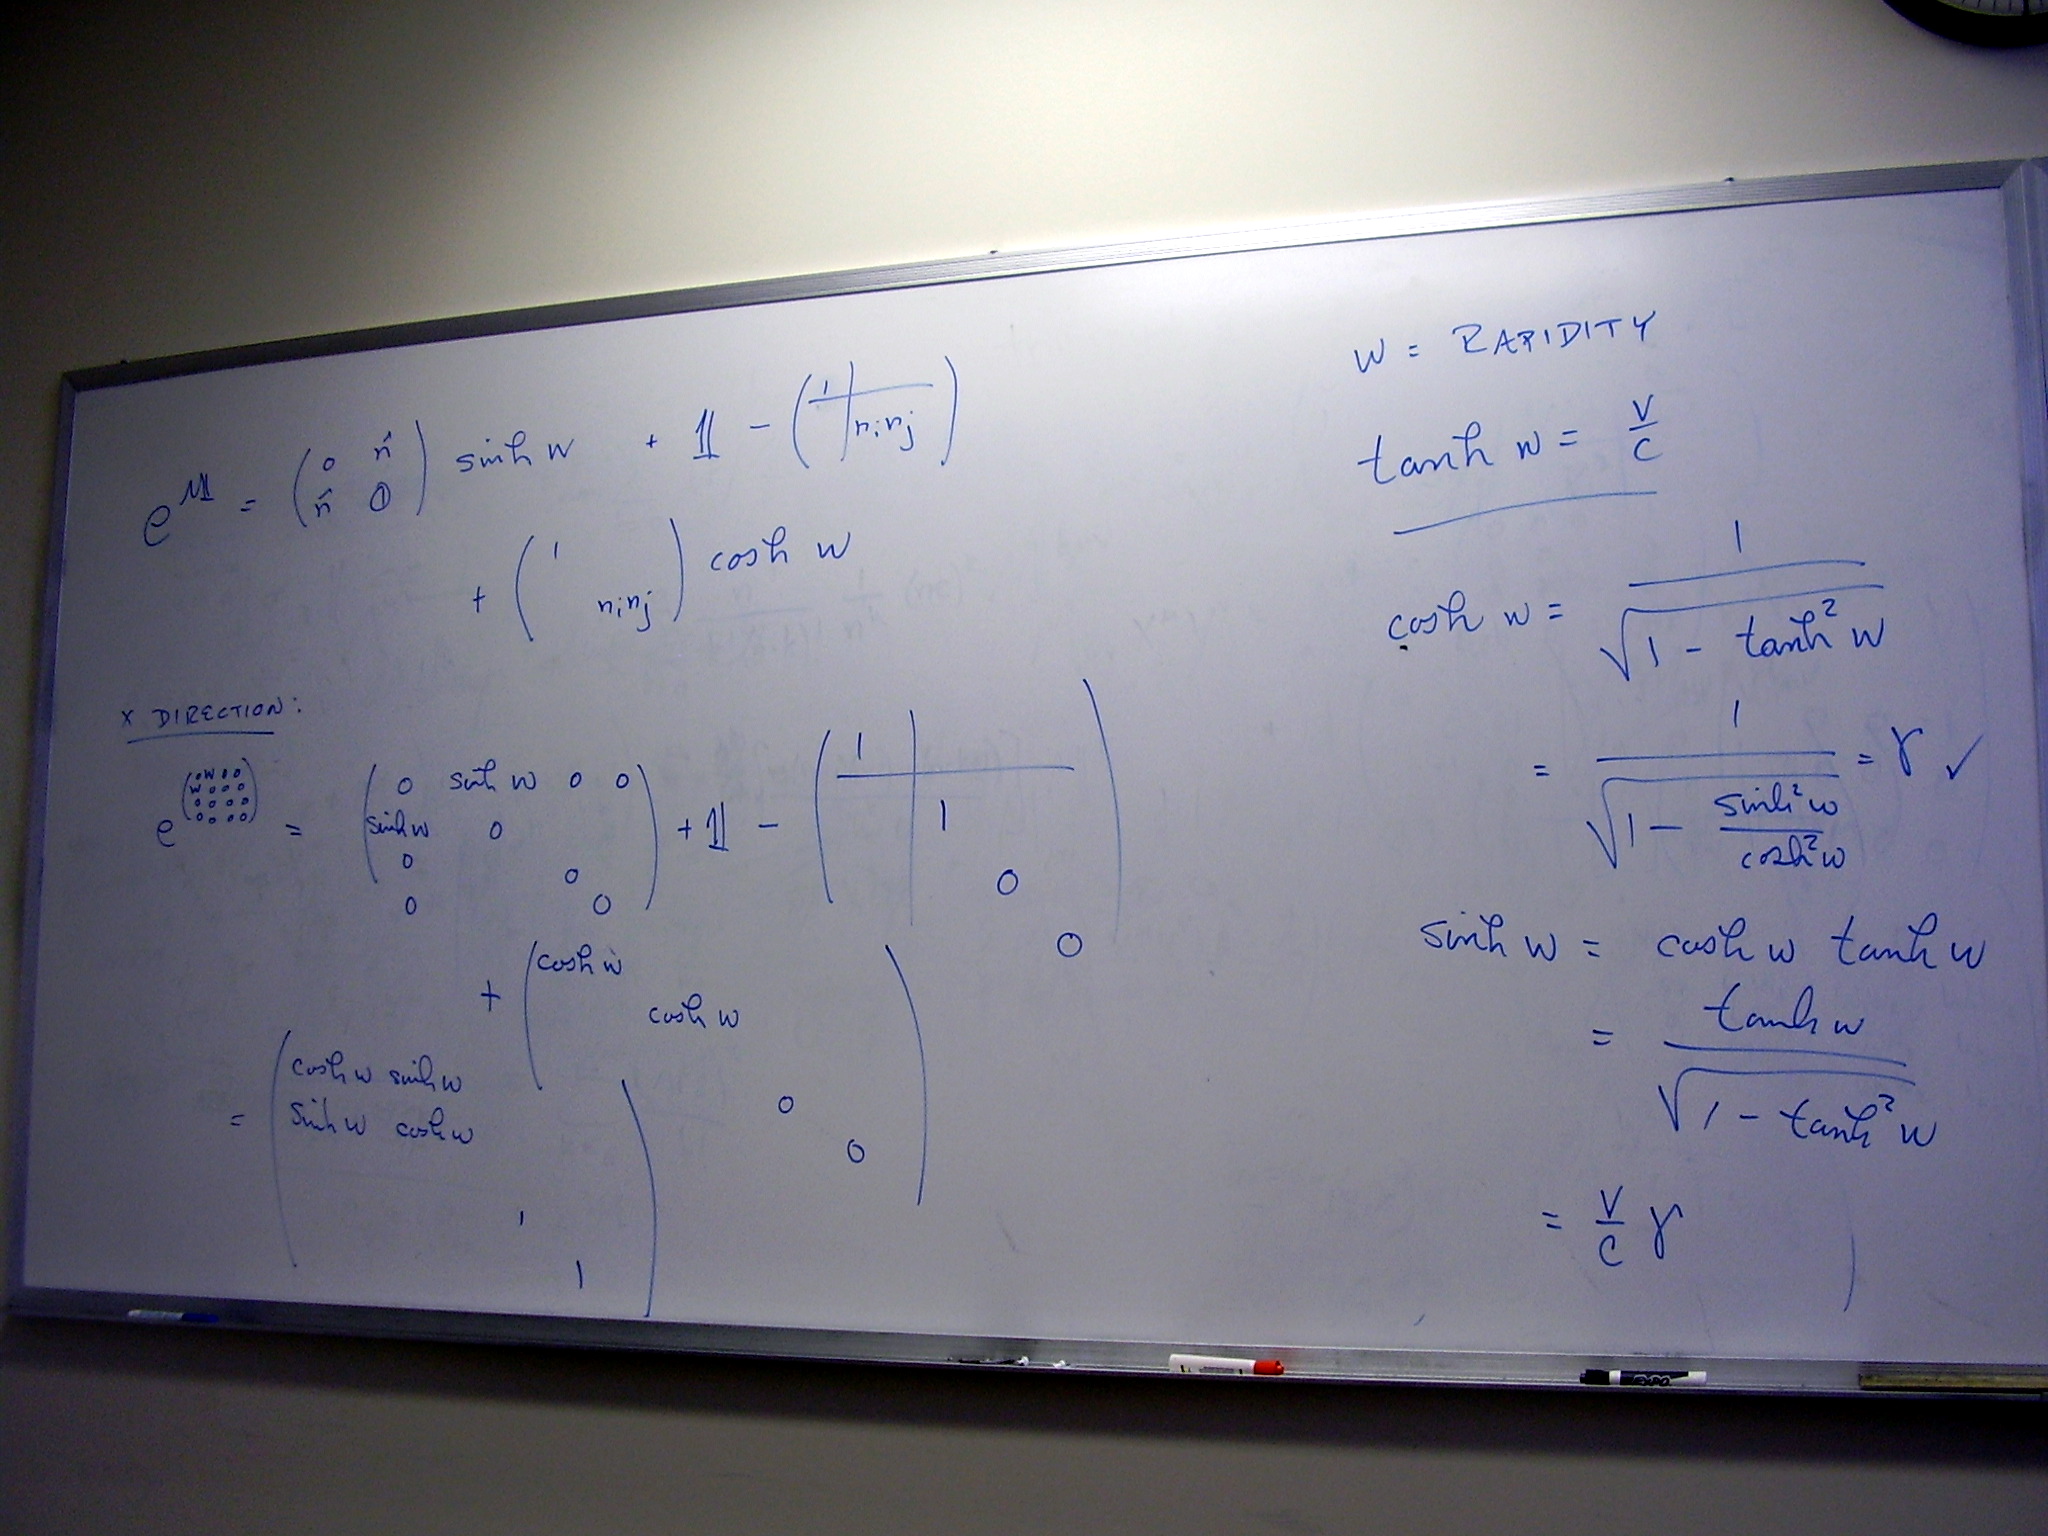 e^M = ( 0 n̂ ; n̂ 0 ) sinh w + 𝟙 − ( 1 | ; | nᵢnⱼ )
+ ( 1 ; nᵢnⱼ ) cosh w
X DIRECTION:
e^( 0 w 0 0 ; w 0 0 0 ; 0 0 0 0 ; 0 0 0 0 ) = ( 0 sinh w 0 0 ; sinh w 0 ; 0 0 ; 0 0 ) + 𝟙 − ( 1 | ; | 1 ; 0 ; 0 )
+ ( cosh w ; cosh w ; 0 ; 0 )
= ( cosh w sinh w ; sinh w cosh w ; 1 ; 1 )
w = RAPIDITY
tanh w = v/c
cosh w = 1/√(1 − tanh² w)
= 1/√(1 − sinh² w/cosh² w) = γ ✓
sinh w = cosh w tanh w
= tanh w/√(1 − tanh² w)
= v/c γ